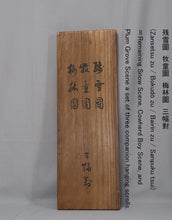 残雪圖 牧童圖 梅林圖 三幅對
(Zansetsu zu / Bokudō zu / Bairin zu / Sanpuku tsui)
=Remaining Snow Scene, Cowherd Boy Scene, and
Plum Grove Scene a set of three companion hanging scrolls
残雪圖
牧童圖
梅林圖
三幅對